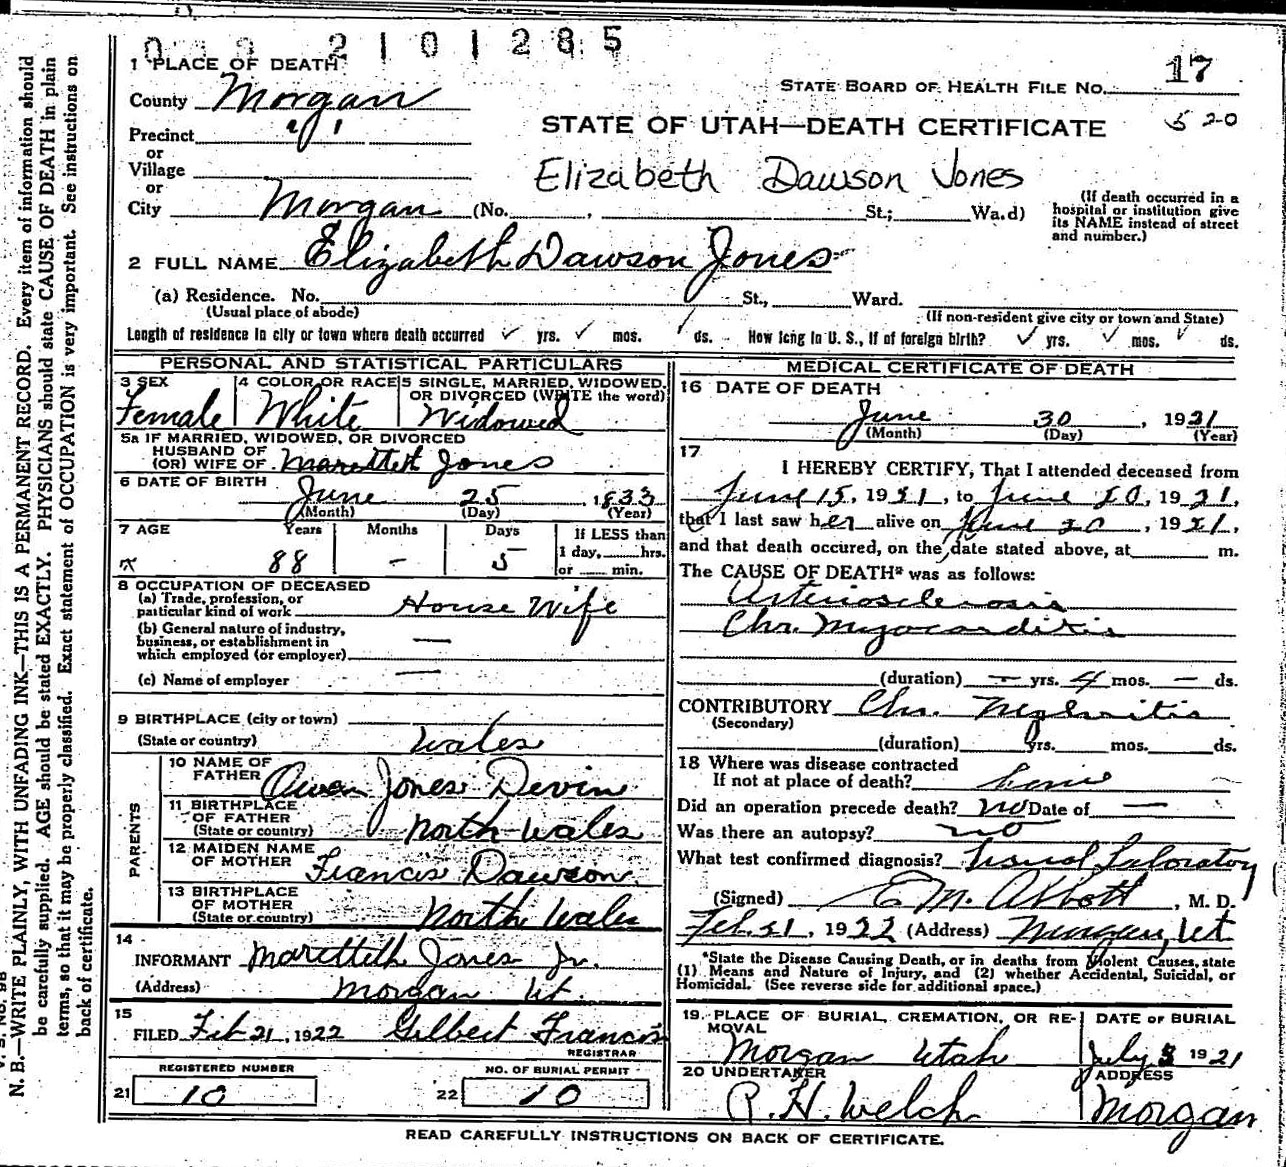 2101285
1 PLACE OF DEATH
County Morgan
Precinct
or
Village
or
City Morgan (No. , St.; Wa.d)
STATE BOARD OF HEALTH FILE No. 17
520
STATE OF UTAH—DEATH CERTIFICATE
Elizabeth Dawson Jones
(If death occurred in a
hospital or institution give
its NAME instead of street
and number.)
2 FULL NAME Elizabeth Dawson Jones
(a) Residence. No. St., Ward.
(Usual place of abode) (If non-resident give city or town and State)
Length of residence in city or town where death occurred yrs. mos. ds. How long in U. S., if of foreign birth? yrs. mos. ds.
PERSONAL AND STATISTICAL PARTICULARS
3 SEX 4 COLOR OR RACE 5 SINGLE, MARRIED, WIDOWED,
OR DIVORCED (WRITE the word)
Female White Widowed
5a IF MARRIED, WIDOWED, OR DIVORCED
HUSBAND OF
(OR) WIFE OF Jones
6 DATE OF BIRTH
June 25 1833
(Month) (Day) (Year)
7 AGE Years Months Days If LESS than
1 day, hrs.
or min.
88 - 5
8 OCCUPATION OF DECEASED
(a) Trade, profession, or
particular kind of work House Wife
(b) General nature of industry,
business, or establishment in
which employed (or employer) —
(c) Name of employer —
9 BIRTHPLACE (city or town)
(State or country) Wales
PARENTS
10 NAME OF
FATHER Owen Jones Devin
11 BIRTHPLACE
OF FATHER
(State or country) North Wales
12 MAIDEN NAME
OF MOTHER Francis Dawson
13 BIRTHPLACE
OF MOTHER
(State or country) North Wales
14
INFORMANT Jones Jr.
(Address) Morgan Ut.
15
FILED Feb 21, 1922 Gilbert Francis
REGISTRAR
REGISTERED NUMBER NO. OF BURIAL PERMIT
21 10 22 10
MEDICAL CERTIFICATE OF DEATH
16 DATE OF DEATH
June 30, 1921
(Month) (Day) (Year)
17
I HEREBY CERTIFY, That I attended deceased from
June 15, 1921, to June 1921,
that I last saw her alive on June 1921,
and that death occured, on the date stated above, at m.
The CAUSE OF DEATH* was as follows:
Arteriosclerosis
Chr. Myocarditis
(duration) — yrs. 4 mos. — ds.
CONTRIBUTORY Chr. Nephritis
(Secondary)
(duration) yrs. mos. ds.
18 Where was disease contracted
If not at place of death?
Did an operation precede death? no Date of —
Was there an autopsy? no
What test confirmed diagnosis? Laboratory
(Signed) E M. Abbott, M. D.
Feb. 21, 1922 (Address) Morgan, Ut.
*State the Disease Causing Death, or in deaths from Violent Causes, state
(1) Means and Nature of Injury, and (2) whether Accidental, Suicidal, or
Homicidal. (See reverse side for additional space.)
19 PLACE OF BURIAL, CREMATION, OR RE-
MOVAL
DATE OF BURIAL
Morgan Utah July 3 1921
20 UNDERTAKER ADDRESS
P. H. Welch Morgan
READ CAREFULLY INSTRUCTIONS ON BACK OF CERTIFICATE.
N. B.—WRITE PLAINLY, WITH UNFADING INK—THIS IS A PERMANENT RECORD. Every item of information should
be carefully supplied. AGE should be stated EXACTLY. PHYSICIANS should state CAUSE OF DEATH in plain
terms, so that it may be properly classified. Exact statement of OCCUPATION is very important. See instructions on
back of certificate.